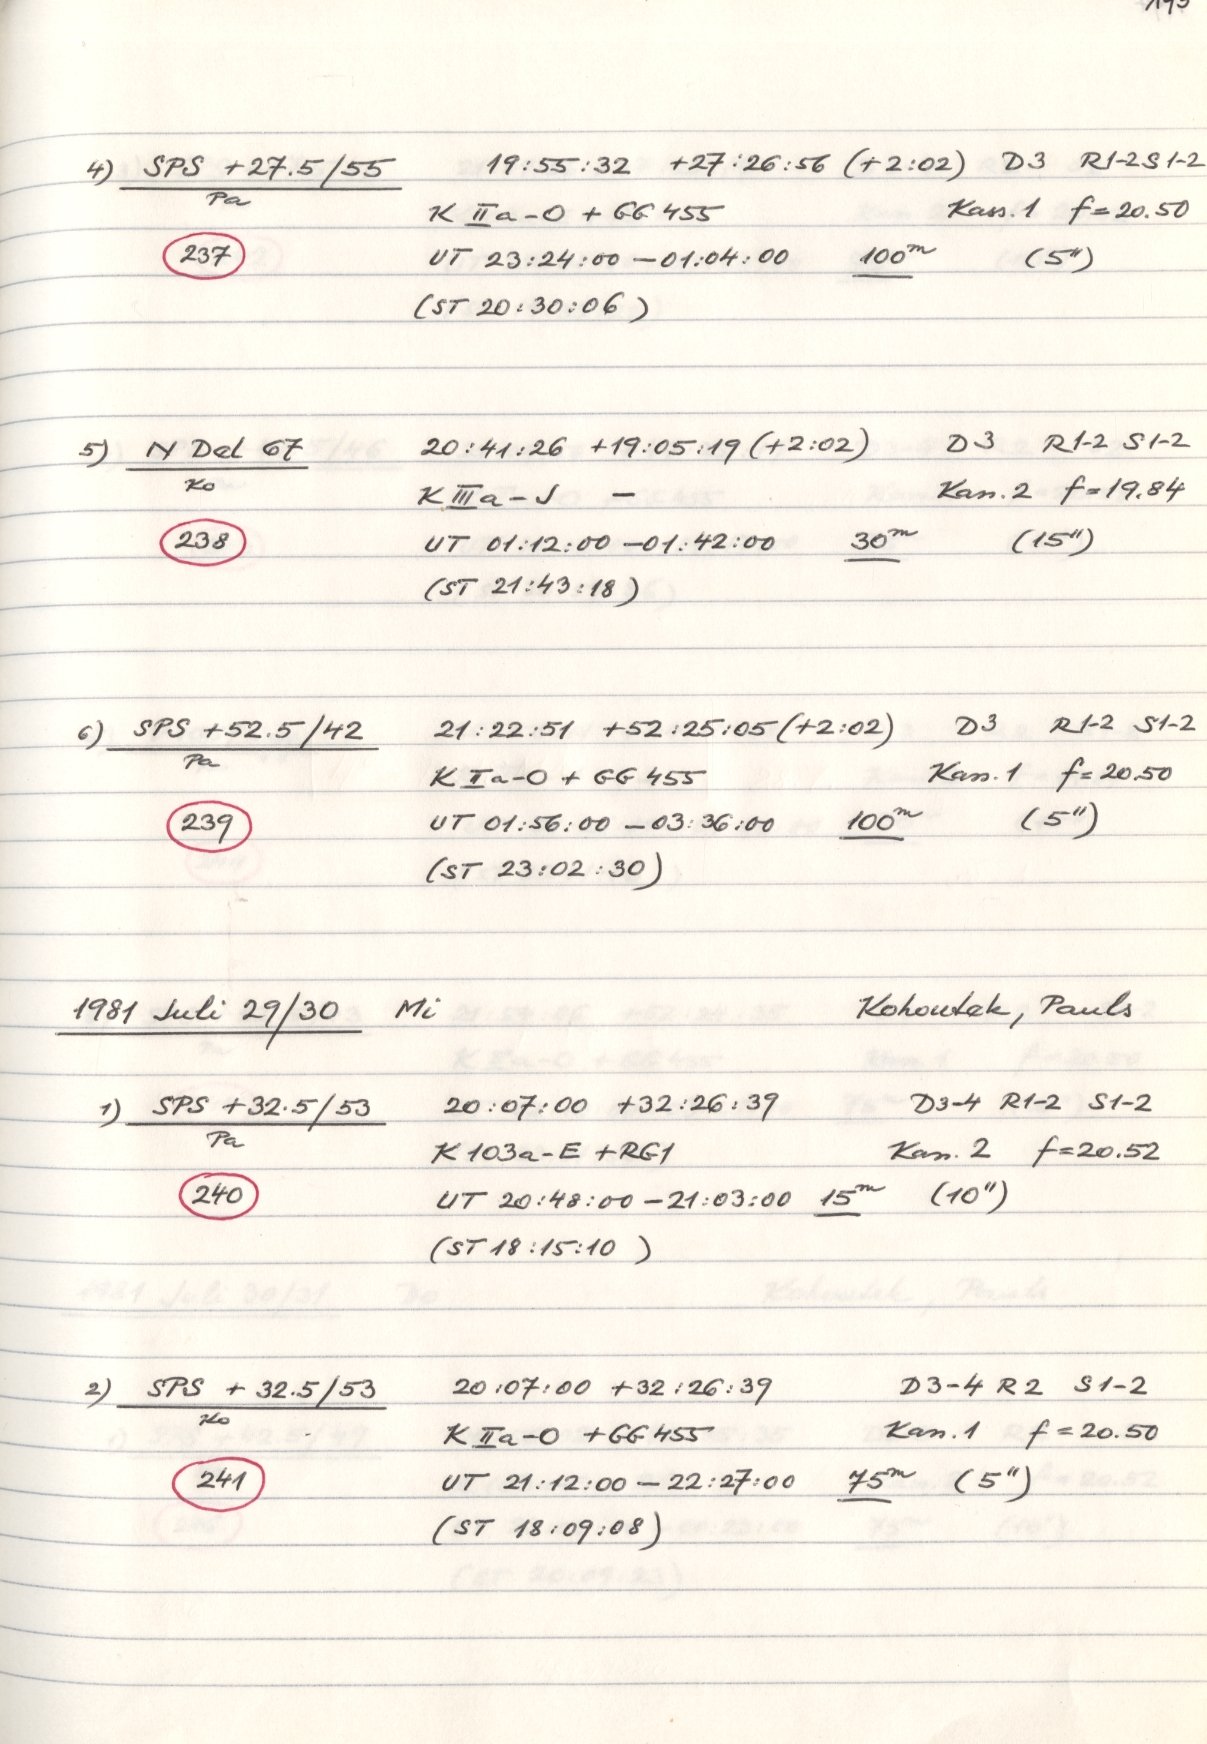 4) SPS +27.5/55 19:55:32 +27:26:56 (+2:02) D3 R1-2 S1-2
Pa K IIa-O + GG 455 Kass. 1 f = 20.50
237 UT 23:24:00 – 01:04:00 100m (5")
(ST 20:30:06)
5) N Del 67 20:41:26 +19:05:19 (+2:02) D3 R1-2 S1-2
Ko K IIIa-J – Kass. 2 f = 19.84
238 UT 01:12:00 – 01:42:00 30m (15")
(ST 21:43:18)
6) SPS +52.5/42 21:22:51 +52:25:05 (+2:02) D3 R1-2 S1-2
Pa K IIa-O + GG 455 Kass. 1 f = 20.50
239 UT 01:56:00 – 03:36:00 100m (5")
(ST 23:02:30)
1981 Juli 29/30 Mi Kohoutek, Pauls
1) SPS +32.5/53 20:07:00 +32:26:39 D3-4 R1-2 S1-2
Pa K 103a-E + RG1 Kass. 2 f = 20.52
240 UT 20:48:00 – 21:03:00 15m (10")
(ST 18:15:10)
2) SPS + 32.5/53 20:07:00 +32:26:39 D3-4 R2 S1-2
Ko K IIa-O + GG 455 Kass. 1 f = 20.50
241 UT 21:12:00 – 22:27:00 75m (5")
(ST 18:09:08)